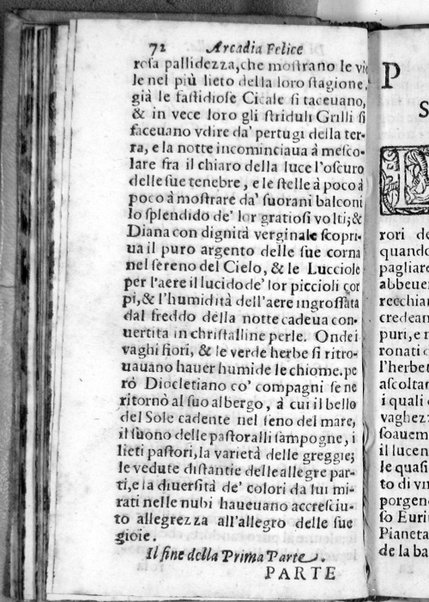 72 Arcadia Felice
rosa pallidezza, che mostrano le vio
le nel più lieto della loro stagione,
già le fastidiose Cicale si taceuano,
& in vece loro gli striduli Grilli si
faceuano vdire da' pertugi della ter-
ra, e la notte incominciaua à mesco-
lare fra il chiaro della luce l'oscuro
delle sue tenebre, e le stelle à poco à
poco à mostrare da' suorani balconi
lo splendido de' lor gratiosi volti; &
Diana con dignità verginale scopri-
ua il puro argento delle sue corna
nel sereno del Cielo, & le Lucciole
per l'aere il lucido de' lor piccioli cor
pi, & l'humidità dell'aere ingrossata
dal freddo della notte cadeua con-
uertita in christalline perle. Onde i
vaghi fiori, & le verde herbe si ritro-
uauano hauer humide le chiome. pe
rò Diocletiano co' compagni se ne
ritornò al suo albergo, à cui il bello
del Sole cadente nel seno del mare,
il suono delle pastorali sampogne, i
lieti pastori, la varietà delle greggie;
le vedute distantie delle allegre par-
ti, e la diuersità de' colori da lui mi-
rati nelle nubi haueuano accresciu-
to allegrezza all'allegro delle sue
gioie.
Il fine della Prima Parte.
PARTE
P
S
rori de
quando
pagliare
abbeuer
recchian
credean
puri, e n
ronati c
l'herbet
ascoltan
i quali
vaghezz
soauem
il lucen
le quasi
to di vn
porgend
so Euri
Pianeta
de la ba